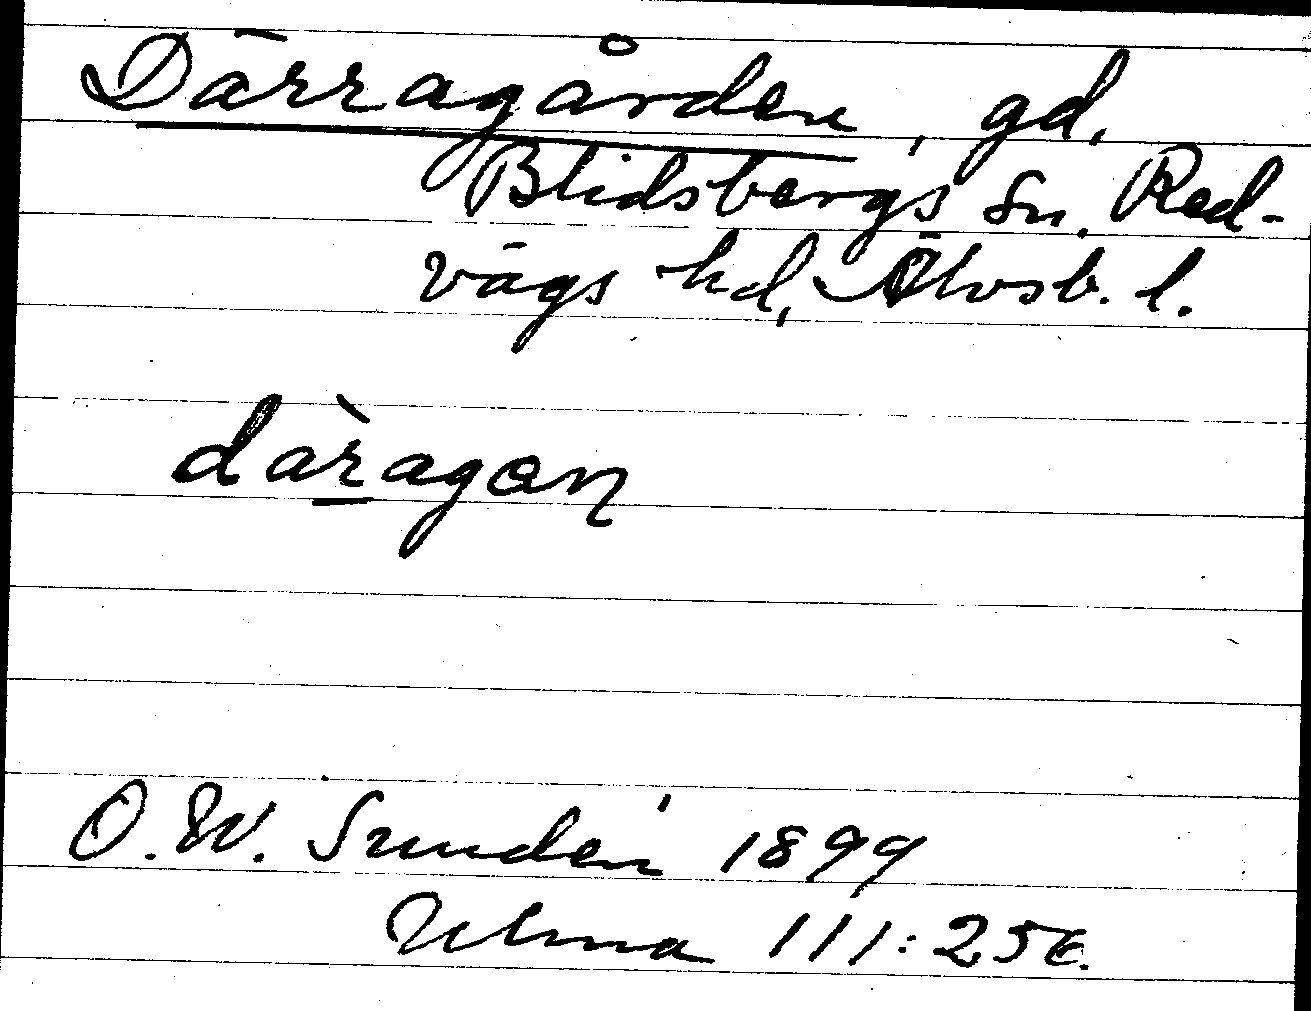 Därragården, gd,
Blidsbergs sn. Red-
vägs hd, Älvsb. l.
dàragon
O. W. Sundén 1899
Ulma 111:256.